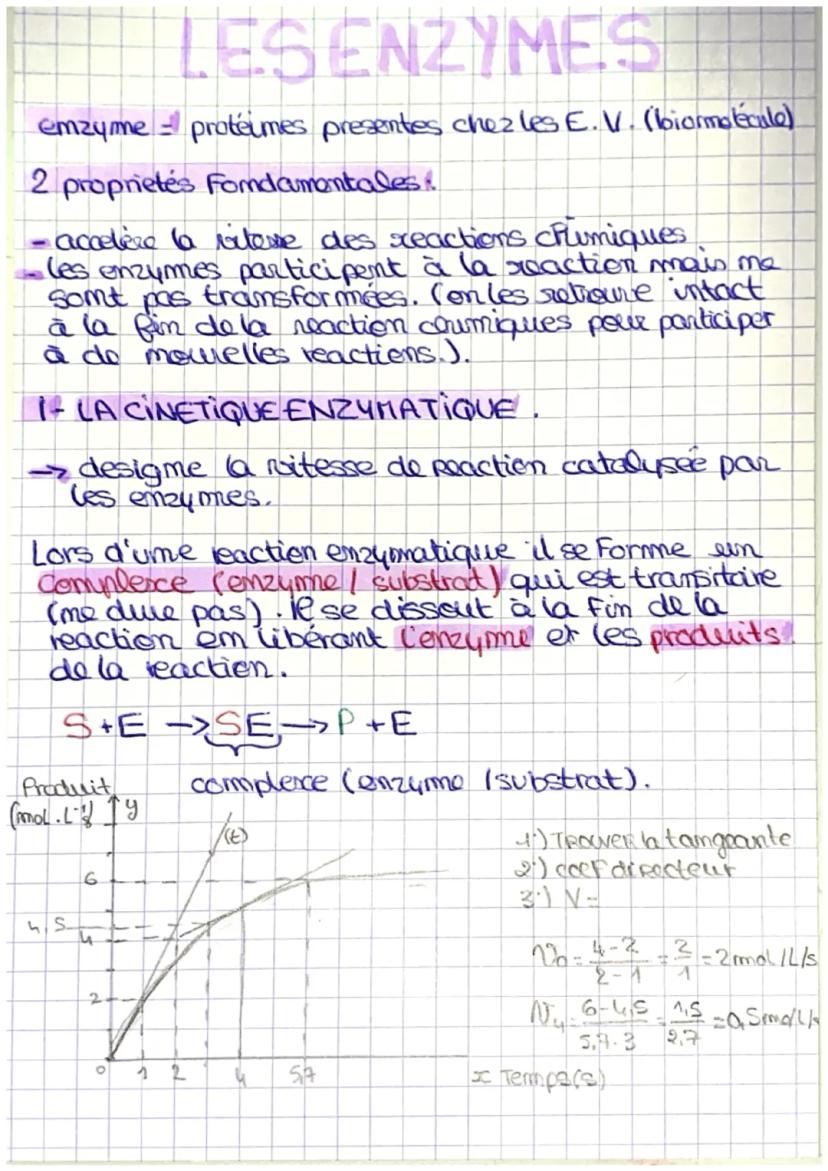 LES ENZYMES
enzyme = protéines presentes chez les E.V. (biomolécule)
2 proprietés Fondamentales:
- accelère la vitesse des reactions chimiques
- les enzymes participent à la reaction mais ne
sont pas transformées. (on les retrouve intact
à la fin de la reaction chimiques pour participer
à de nouvelles reactions.).
1- LA CINETIQUE ENZYMATIQUE.
→ designe la vitesse de reaction catalysée par
les enzymes.
Lors d'une reaction enzymatique il se forme un
Complexe (enzyme / substrat) qui est transitoire
(ne dure pas). Il se dissout à la fin de la
reaction en libérant l'enzyme et les produits
de la reaction.
S + E → SE → P + E
complexe (enzyme / substrat).
Produit
(mol.L⁻¹) y
(t)
6
4,5
4
2
0 1 2 4 5,7
x Temps(s)
1°) TROUVER la tangeante
2°) coef directeur
3°) V=
V0 = 4-2 / 2-1 = 2/1 = 2 mol/L/s
V4 = 6-4,5 / 5,7-3 = 1,5 / 2,7 = 0,5 mol/L/s